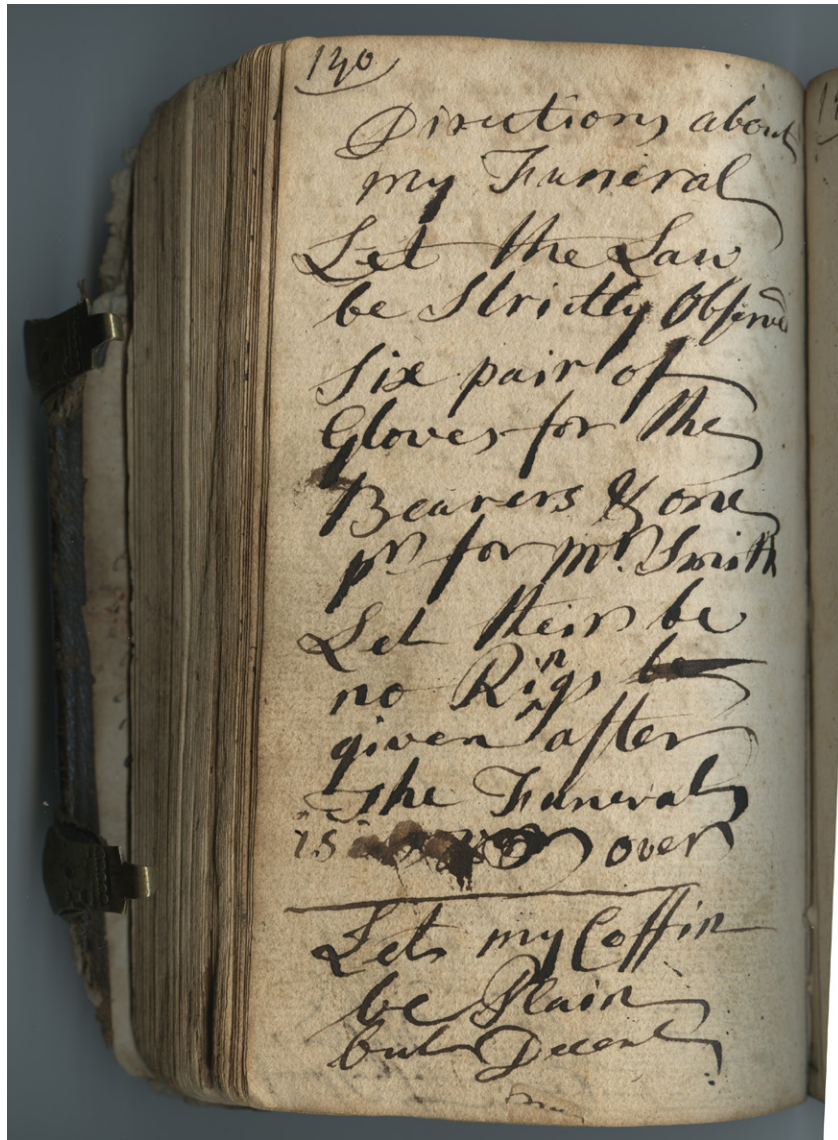 140
Directions about
my Funeral
Let the Law
be Strictly Observd
Six pair of
Gloves for the
Bearers & one
pr for Mr. Smith
Let their be
no Rings be
given after
The Funeral
is over
Let my Coffin
be Plain
but Decent